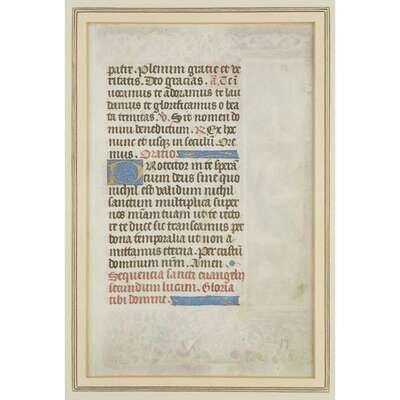 patre. Plenum gratie et ve
ritatis. Deo gracias. A. Te in
uocamus te adoramus te lau
damus te glorificamus o bea
ta trinitas. V. Sit nomen do
mini benedictum. R. Ex hoc
nunc et usq; in seculum. Ore
mus. Oratio
Protector in te spera
tium deus sine quo
nichil est validum nichil
sanctum multiplica super
nos miam tuam ut te recto
re te duce sic transeamus per
bona temporalia ut non a
mittamus eterna. Per cristū
dominum nrm. Amen
Sequencia sancti euangelij
secundum lucam. Gloria
tibi domine.